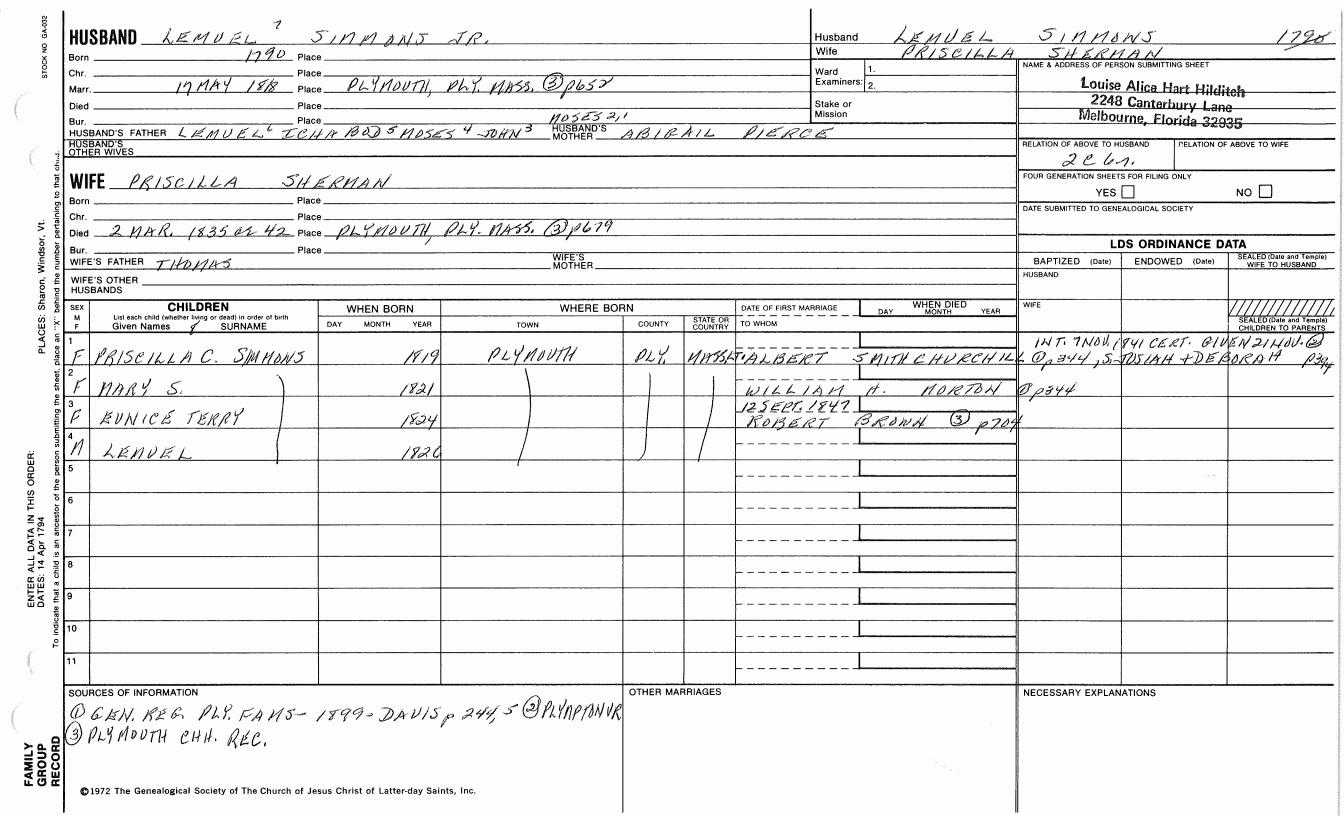 STOCK NO. GA-032
HUSBAND LEMUEL 7 SIMMONS JR.
Born 1790 Place
Chr. Place
Marr. 17 MAY 1818 Place PLYMOUTH, PLY. MASS. ③ p652
Died Place
Bur. Place
MOSES 2,1
HUSBAND'S FATHER LEMUEL 6 ICHABOD 5 MOSES 4 JOHN 3 HUSBAND'S MOTHER ABIGAIL PIERCE
HUSBAND'S OTHER WIVES
WIFE PRISCILLA SHERMAN
Born Place
Chr. Place
Died 2 MAR. 1835 or 42 Place PLYMOUTH, PLY. MASS. ③ p679
Bur. Place
WIFE'S FATHER THOMAS WIFE'S MOTHER
WIFE'S OTHER HUSBANDS
Husband LEMUEL SIMMONS 1790
Wife PRISCILLA SHERMAN
Ward 1.
Examiners: 2.
Stake or Mission
NAME & ADDRESS OF PERSON SUBMITTING SHEET
Louise Alice Hart Hilditch
2248 Canterbury Lane
Melbourne, Florida 32935
RELATION OF ABOVE TO HUSBAND RELATION OF ABOVE TO WIFE
FOUR GENERATION SHEETS FOR FILING ONLY
YES NO
DATE SUBMITTED TO GENEALOGICAL SOCIETY
LDS ORDINANCE DATA
BAPTIZED (Date) ENDOWED (Date) SEALED (Date and Temple) WIFE TO HUSBAND
HUSBAND
WIFE
SEALED (Date and Temple) CHILDREN TO PARENTS
SEX M F CHILDREN WHEN BORN WHERE BORN DATE OF FIRST MARRIAGE WHEN DIED
List each child (whether living or dead) in order of birth
Given Names SURNAME DAY MONTH YEAR TOWN COUNTY STATE OR COUNTRY TO WHOM DAY MONTH YEAR
INT. 7 NOV. 1841 CERT. GIVEN 21 NOV. ②
1 F PRISCILLA C. SIMMONS 1819 PLYMOUTH PLY. MASS. ALBERT SMITH CHURCHILL ① p344, S. JOSIAH + DEBORAH p394
2 F MARY S. 1821 WILLIAM H. MORTON ① p344
12 SEPT. 1847
3 F EUNICE TERRY 1824 ROBERT BROWN ③ p704
4 M LEMUEL 1826
5
6
7
8
9
10
11
SOURCES OF INFORMATION
① GEN. REG. PLY. FAMS - 1899 - DAVIS p 244, 5 ② PLYMPTON VR
③ PLYMOUTH CHH. REC.
OTHER MARRIAGES
NECESSARY EXPLANATIONS
©1972 The Genealogical Society of The Church of Jesus Christ of Latter-day Saints, Inc.
FAMILY
GROUP
RECORD
ENTER ALL DATA IN THIS ORDER:
DATES: 14 Apr 1794 PLACES: Sharon, Windsor, Vt.
To indicate that a child is an ancestor of the person submitting the sheet, place an "X" behind the number pertaining to that child.